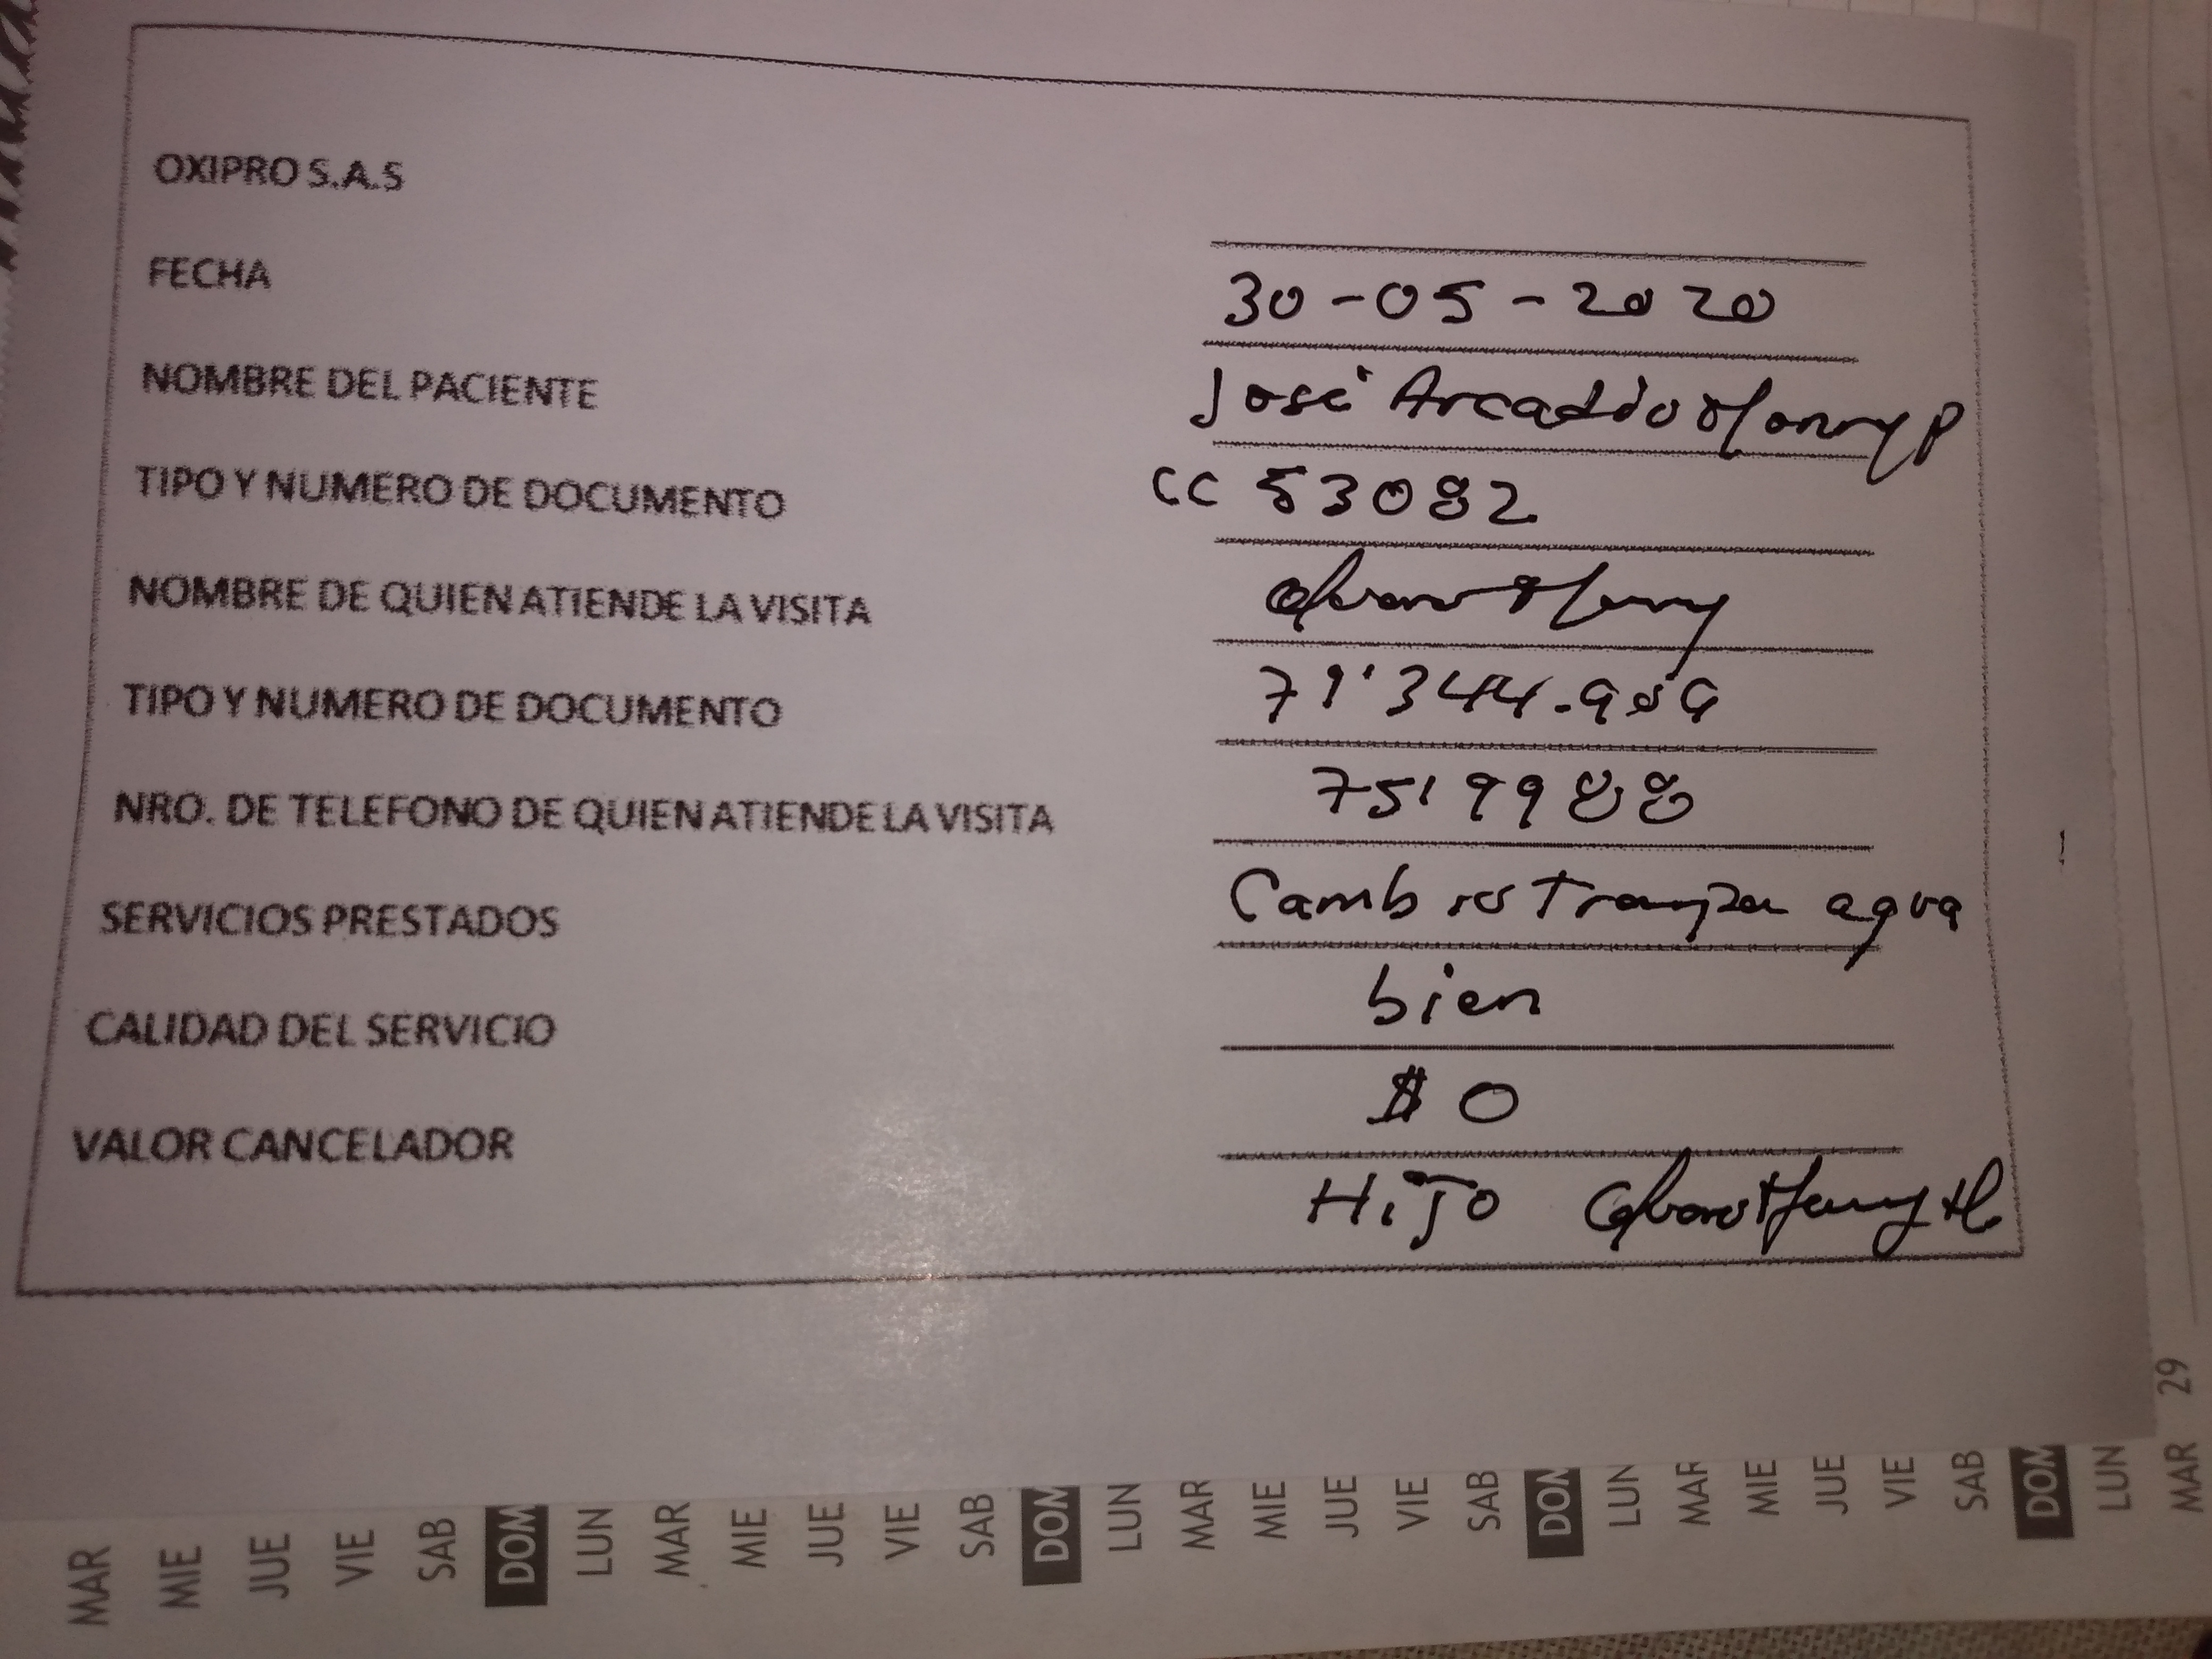 OXIPRO S.A.S
FECHA 30-05-2020
NOMBRE DEL PACIENTE José Arcadio P
TIPO Y NUMERO DE DOCUMENTO CC 53082
NOMBRE DE QUIEN ATIENDE LA VISITA
TIPO Y NUMERO DE DOCUMENTO
NRO. DE TELEFONO DE QUIEN ATIENDE LA VISITA 7519988
SERVICIOS PRESTADOS agua
CALIDAD DEL SERVICIO bien
VALOR CANCELADOR $ 0
HiJo
29
MAR MIE JUE VIE SAB DOM LUN MAR MIE JUE VIE SAB DOM LUN MAR MIE JUE VIE SAB DOM LUN MAR MIE JUE VIE SAB DOM LUN MAR